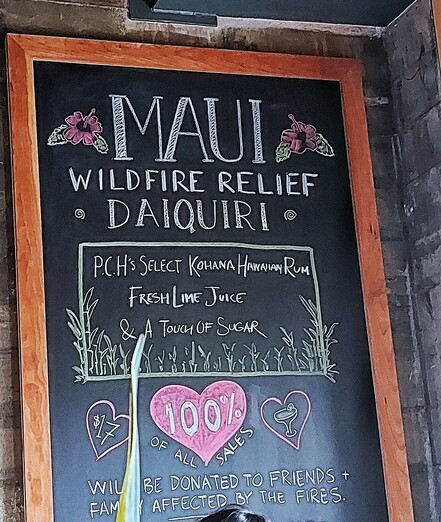 MAUI
WILDFIRE RELIEF
DAIQUIRI
P.C.H's SELECT KOHANA HAWAIIAN RUM
FRESH LIME JUICE
& A TOUCH OF SUGAR
100%
OF ALL SALES
WILL BE DONATED TO FRIENDS +
FAMILY AFFECTED BY THE FIRES.